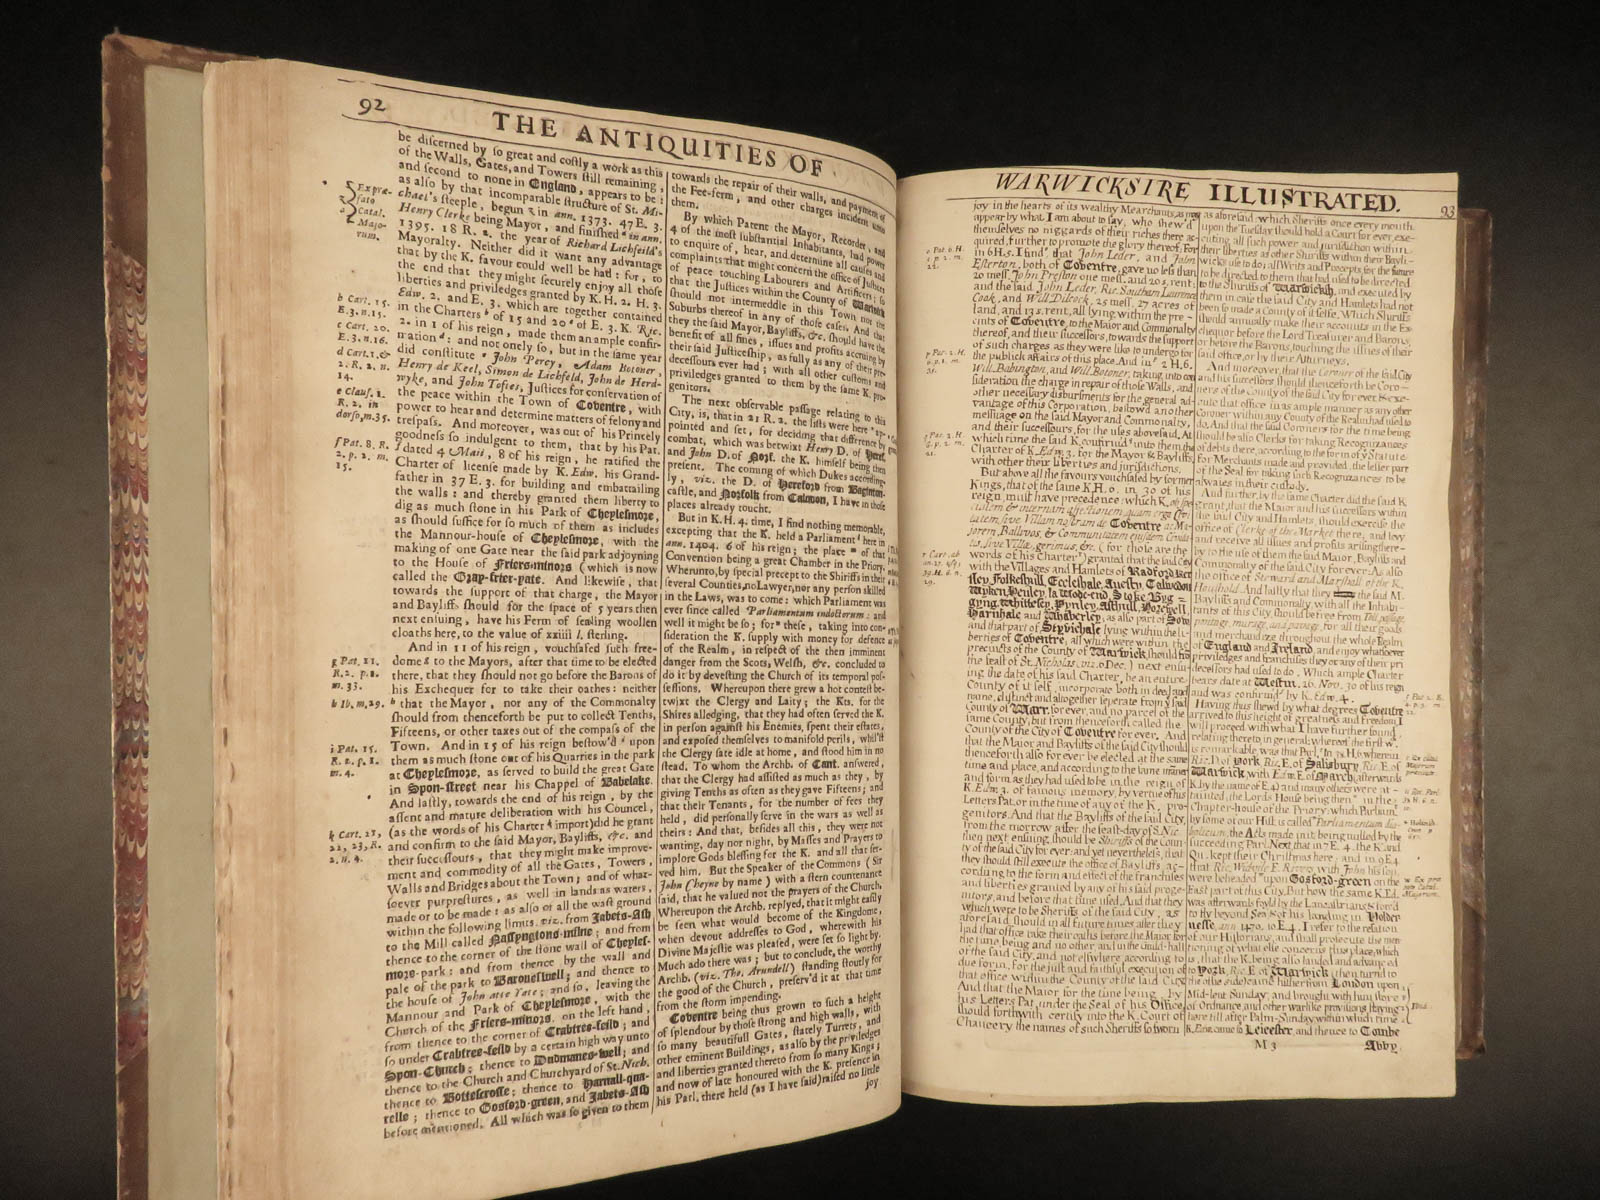 92
THE ANTIQUITIES OF
be discerned by so great and costly a work as this
of the Walls, Gates, and Towers still remaining,
and second to none in England, appears to be:
as also by that incomparable structure of St. Mi-
chael's steeple, begun in ann. 1373. 47 E. 3.
Henry Clerke being Mayor, and finished in ann.
1395. 18 R. 2. the year of Richard Lichfeild's
Mayoralty. Neither did it want any advantage
that by the K. favour could well be had: for, to
the end that they might securely enjoy all those
liberties and priviledges granted by K. H. 2. H. 3.
Edw. 2. and E. 3. which are together contained
in the Charters b of 15 and 20 c of E. 3. K. Ric.
2. in 1 of his reign, made them an ample confir-
mation d: and not onely so, but in the same year
did constitute e John Percy, Adam Botoner,
Henry de Keel, Simon de Lichfeld, John de Herd-
wyke, and John Tofies, Justices for conservation of
the peace within the Town of Coventre, with
power to hear and determine matters of felony and
trespass. And moreover, was out of his Princely
goodness so indulgent to them, that by his Pat.
f dated 4 Maii, 8 of his reign, he ratified the
Charter of license made by K. Edw. his Grand-
father in 37 E. 3. for building and embatailing
the walls: and thereby granted them liberty to
dig as much stone in his Park of Cheylesmore,
as should suffice for so much of them as includes
the Mannour-house of Cheylesmore, with the
making of one Gate near the said park adjoyning
to the House of Friers-minors (which is now
called the Gray-frier-yate. And likewise, that
towards the support of that charge, the Mayor
and Bayliffs should for the space of 5 years then
next ensuing, have his Ferm of sealing woollen
cloaths here, to the value of xxiiii l. sterling.
And in 11 of his reign, vouchsafed such free-
dome g to the Mayors, after that time to be elected
there, that they should not go before the Barons of
his Exchequer for to take their oathes: neither
h that the Mayor, nor any of the Commonalty
should from thenceforth be put to collect Tenths,
Fifteens, or other taxes out of the compass of the
Town. And in 15 of his reign bestow'd i upon
them as much stone out of his Quarries in the park
at Cheylesmore, as served to build the great Gate
in Spon-street near his Chappel of Babelake.
And lastly, towards the end of his reign, by the
assent and mature deliberation with his Councel,
(as the words of his Charter k import) did he grant
and confirm to the said Mayor, Bayliffs, &c. and
their successours, that they might make improve-
ment and commodity of all the Gates, Towers,
Walls and Bridges about the Town; and of what-
soever purprestures, as well in lands as waters,
made or to be made: as also of all the wast ground
within the following limits, viz. from Jabets-Ash
to the Mill called Nassyngtons-milne; and from
thence to the corner of the stone wall of Cheyles-
more-park: and from thence by the wall and
pale of the park to Baroneswell; and thence to
the house of John atte Yate; and so, leaving the
Mannour and Park of Cheylesmore, with the
Church of the Friers-minors, on the left hand,
from thence to the corner of Crabtree-feild; and
so under Crabtree-feild by a certain high way unto
Spon-Church; thence to Dudmanes-well; and
thence to the Church and Churchyard of St. Nich.
thence to Bottescrosse; thence to Harnall-qua-
relle; thence to Gosford-green, and Jabets-Ash
before mentioned. All which was so given to them
Expræ-
fato
Catal.
Majo-
rum.
b Cart. 15.
E. 3. n. 15.
c Cart. 20.
E. 3. n. 16.
d Cart. 1. &
2. R. 2. n.
14.
e Claus. 1.
R. 2. in
dorso, m. 35.
f Pat. 8. R.
2. p. 2. m.
15.
g Pat. 11.
R. 2. p. 1.
m. 33.
h Ib. m. 29.
i Pat. 15.
R. 2. p. 1.
m. 4.
k Cart. 21,
22, 23, R.
2. n. 4.
towards the repair of their walls, and payment of
the Fee-ferm, and other charges incident unto
them.
By which Patent the Mayor, Recorder, and
4 of the most substantial Inhabitants, had power
to enquire of, hear, and determine all causes and
complaints that might concern the office of Justices
of peace touching Labourers and Artificers; so
that the Justices within the County of Warwick
should not intermeddle in this Town nor the
Suburbs thereof in any of those cases. And that
they the said Mayor, Bayliffs, &c. should have the
benefit of all fines, issues and profits accruing by
their said Justiceship, as fully as any of their pre-
decessours ever had; with all other customs and
priviledges granted to them by the same K. pro-
genitors.
The next observable passage relating to this
City, is, that in 21 R. 2. the lists were here ap-
pointed and set, for deciding that difference by
combat, which was betwixt Henry D. of Heref.
and John D. of Norf. the K. himself being then
present. The coming of which Dukes according-
ly, viz. the D. of Hereford from Baginton-
castle, and Norfolk from Caludon, I have in those
places already toucht.
But in K. H. 4. time, I find nothing memorable,
excepting that the K. held a Parliament here in
ann. 1404. 6 of his reign; the place of that
Convention being a great Chamber in the Priory.
Wherunto, by special precept to the Shiriffs in their
several Counties, no Lawyer, nor any person skilled
in the Laws, was to come: which Parliament was
ever since called Parliamentum indoctorum: and
well it might be so; for these, taking into con-
sideration the K. supply with money for defence
of the Realm, in respect of the then imminent
danger from the Scots, Welsh, &c. concluded to
do it by devesting the Church of its temporal pos-
sessions. Whereupon there grew a hot contest be-
twixt the Clergy and Laity; the Kts. for the
Shires alledging, that they had often served the K.
in person against his Enemies, spent their estates,
and exposed themselves to manifold perils, whil'st
the Clergy sate idle at home, and stood him in no
stead. To whom the Archb. of Cant. answered,
that the Clergy had assisted as much as they, by
giving Tenths as often as they gave Fifteens; and
that their Tenants, for the number of fees they
held, did personally serve in the wars as well as
theirs: And that, besides all this, they were not
wanting, day nor night, by Masses and Prayers to
implore Gods blessing for the K. and all that ser-
ved him. But the Speaker of the Commons (Sir
John Cheyne by name) with a stern countenance
said, that he valued not the prayers of the Church,
Whereupon the Archb. replyed, that it might easily
be seen what would become of the Kingdome,
when devout addresses to God, wherewith his
Divine Majestie was pleased, were set so light by.
Much ado there was; but to conclude, the worthy
Archb. (viz. Tho. Arundell) standing stoutly for
the good of the Church, preserv'd it at that time
from the storm impending.
Coventre being thus grown to such a height
of splendour by those strong and high walls, with
so many beautifull Gates, stately Turrets, and
other eminent Buildings, as also by the priviledges
and liberties granted thereto from so many Kings;
and now of late honoured with the K. presence in
his Parl. there held (as I have said) raised no little
joy
WARWICKSIRE ILLUSTRATED.
93
joy in the hearts of its wealthy Mearchants, as may
appear by what I am about to say, who shew'd
themselves no niggards of their riches there ac-
quired, further to promote the glory thereof, For
in 6 H. 5. I find, that John Leder, and John
Esterton, both of Coventre, gave no less than
20 mess. John Preston one mess. and 20 s. rent;
and the said John Leder, Ric. Southam Laurence
Cook, and Will Dilcock, 25 mess. 27 acres of
land, and 13 s. rent, all lying within the pre-
cincts of Coventre, to the Maior and Commonalty
thereof, and their successors, towards the support
of such charges as they were like to undergo for
the publick affairs of this place. And in 2 H. 6.
Will. Babington, and Will. Botoner, taking into con
sideration the charge in repair of those Walls, and
other necessary disbursments for the general ad-
vantage of this Corporation, bestow'd another
messuage on the said Mayor and Commonalty,
and their successours, for the uses abovesaid. At
which time the said K. confirm'd unto them the
Charter of K. Edw. 3. for the Mayor & Bayliffs
with other their liberties and jurisdictions.
But above all the favours vouchsafed by former
Kings, that of the same K. H. 6. in 30 of his
reign, must have precedence; which K. ob spe-
cialem & internam affectionem quam erga Civi-
tatem, sive Villam nostram de Coventre ac Ma-
jorem, Ballivos, & Communitatem ejusdem Civita-
tis, sive Villæ, gerimus, &c. (for those are the
words of his Charter) granted that the said City
with the Villages and Hamlets of Radford, Ker
sley, Folkeshull, Excleshale, Anesty, Calwedon
Wyken, Henley, la Wode-end, Stoke, Byg-
gyng, Whitteley, Pynley, Asthull, Horewell,
Harnhale and Whaberley; as also part of Sow
and that part of Styvichale lying within the li-
berties of Coventre; all which were within the
precincts of the County of Warwick, should fro
the feast of St. Nicholas, viz. 6 Dec.) next ensu-
ing the date of this said Charter, be an entire
County of it self, incorporate both in deed and
name, distinct and altogether seperate from ye said
County of Warr. for ever, and no parcel of the
same County, but from thenceforth, called the
County of the City of Coventre for ever. And
that the Maior and Bayliffs of the said City should
thenceforth also for ever be elected at the same
time and place, and according to the same maner
and form as they had used to be in the reign of
K. Edw. 3. of famous memory, by vertue of his
Letters Pat. or in the time of any of the K. pro-
genitors. And that the Bayliffs of the said City,
from the morrow after the feast-day of S. Nic.
then next ensuing, should be Shiriffs of the Coun-
ty of the said City for ever: and yet nevertheless, that
they should still execute the office of Bayliffs, ac-
cording to the form and effect of the franchises
and liberties granted by any of his said proge-
nitors, and before that time used. And that they
which were to be Sheriffs of the said City, as
aforesaid should in all future times after they
had that office take their oaths before the Maior for
the time being and no other, and in the Guild-hall
of the said City, and not elsewhere, according to
due form, for the just and faithful execution of
that office within the County of the said City
And that the Maior for the time being, by
his Letters Pat. under the Seal of his Office
should forthwith certify into the K. Court of
Chancery the names of such Sheriffs so sworn
o Pat. 6. H.
5. p. 2. m.
p Pat. 2. H.
6. p. 1. m.
q Pat. 2. H.
r Cart. ab
39. H. 6. n.
29.
as aforesaid: which Sheriffs once every month
upon the Tuesday should hold a Court for ever, exe-
cuting all such power and jurisdiction within
their liberties as other Sheriffs within their Bayli-
wicks use to do; all Writs and Precepts for the future
to be directed to them that had used to be directed
to the Sheriffs of Warwicksh. and executed by
them in case the said City and Hamlets had not
been so made a County of it selfe. Which Shiriffs
should annually make their accounts in the Ex-
chequor before the Lord Treasurer and Barons,
or before the Barons, touching the issues of their
said office, or by their Atturneys.
And moreover, that the Coroner of the said City
and his Successors should thenceforth be Coro-
ners of the County of the said City for ever, & exe-
cute that office in as ample manner as any other
Coroner within any County of the Realm had used to
do. And that the said Coroners for the time being
should be also Clerks for taking Recognizances
of debts there, according to the form of ye Statute
for Merchants made and provided, the lesser part
of the Seal for taking such Recognizances to be
alwaies in their custody.
And further, by the same Charter did the said K.
grant, that the Maior and his successors within
the said City and Hamlets, should exercise the
office of Clerk of the Market there, and levy
and receive all issues and profits arising there-
by to the use of them the said Maior, Bayliffs and
Commonalty of the said City for ever: As also
the office of Steward and Marshall of the K.
Houshold. And lastly that they the said M.
Bayliffs and Commonalty, with all the Inhabi-
tants of this City should be free from Toll, passage,
pontage, murage, and pavage, for all their goods
and merchandize throughout the whole Realm
of England and Ireland, and enjoy whatsoever
priviledges and franchises they or any of their pre
decessors had used to do. Which ample Charter
bears date at Westm. 26. Nov. 30 of his reign
and was confirm'd by K. Edw. 4.
Having thus shew'd by what degrees Coventre
arrived to this height of greatness and freedom, I
will proceed with what I have further found
relating thereto in general; whereof the first wch
is remarkable was that Parl. in 38 H. 6. wherein
Ric. D. of York, Ric. E. of Salisbury, Ric. E. of
Warwick, with Edw. E. of March, afterwards
K. by the name of E. 4.) and many others were at-
tainted, the Lords House being then in the
Chapter-House of the Priory; which Parliamt
by some of our Hist. is called Parliamentum dia-
bolicum, the Acts made in it being nulled by the
succeeding Parl. Next that in 7 E. 4. the K. and
Qu. kept their Christmas here; and in 9 E. 4.
that Ric. Widvile E. Rivers, with John his son,
were beheaded upon Gosford-green on the
East part of this City. But how the same K. Ed.
was afterwards foyl'd by the Lancastrians & forc'd
to fly beyond Sea & of his landing in Holder
nesse, ann. 1470. 10 E. 4. I refer to the relation
of our Historians; and shall prosecute the men-
tioning of what else concerns this place; which
is, that the K. being also landed and advanced
to York, Ric. E. of Warwick (then turn'd to
the other side) came hither from London upon
Mid-lent Sunday, and brought with him store
of Ordnance, and other warlike provisions, staying
here till after Palm-Sunday within which time
K. Edw. came to Leicester, and thence to Combe
M 3
Abby,